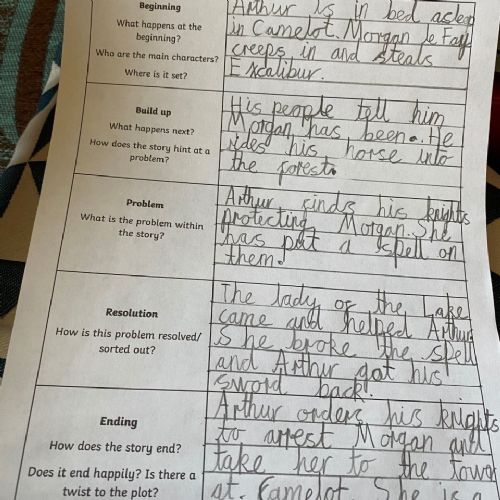 Beginning
What happens at the
beginning?
Who are the main characters?
Where is it set?
Arthur is in bed asleep
in Camelot. Morgan le Fay
creeps in and steals
Excalibur.
Build up
What happens next?
How does the story hint at a
problem?
His people tell him
Morgan has been. He
rides his horse into
the forest.
Problem
What is the problem within
the story?
Arthur finds his knights
protecting Morgan. She
has put a spell on
them.
Resolution
How is this problem resolved/
sorted out?
The lady of the Lake
came and helped Arthur
She broke the spell
and Arthur got his
sword back.
Ending
How does the story end?
Does it end happily? Is there a
twist to the plot?
Arthur orders his knights
to arrest Morgan and
take her to the tower
at Camelot. She is